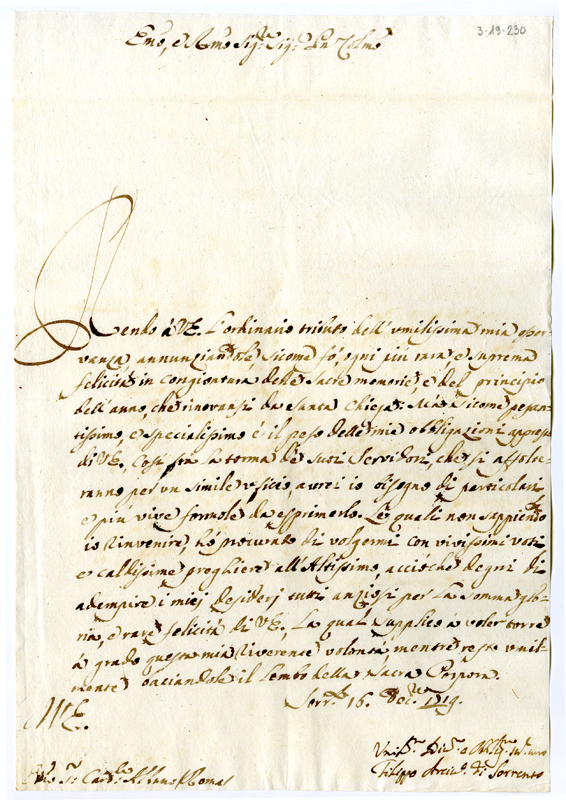 3-19-230
Emo, e Rmo Sigr. Sigr. Pn Colmo
Rendo à VE. l'ordinario tributo dell'umilissima mia osser-
vanza annunziandole sicome fò, ogni più rara, e suprema
felicità in congiontura delle sacre memorie, e del principio
dell'anno, che rinovansi da Santa Chiesa: Mà sicome pesan-
tissimo, e specialissimo è il peso delle mie obbligazioni appresso
di VE. così frà la torma de suoi Servidori, che si affolle-
ranno per un simile uficio, avrei io bisogno di particolari
e più vive formole da esprimerlo. Le quali non sappiendo
io rinvenire, hò procurato di volgermi con vivissimi voti
e caldissime preghiere all'Altissimo, acciòche degni di
adempire i miej desiderj tutti anziosi per la somma glo-
ria, e rare felicità di VE., La qual supplico à voler torre
à grado questa mia riverente volontà, mentre resto umil-
mente baciandole il lembo della Sacra Porpora.
Sorrto. 16. Dece. 1719.
VE.
Sr. Cardle Albano Roma
Filippo Arciv. di Sorrento